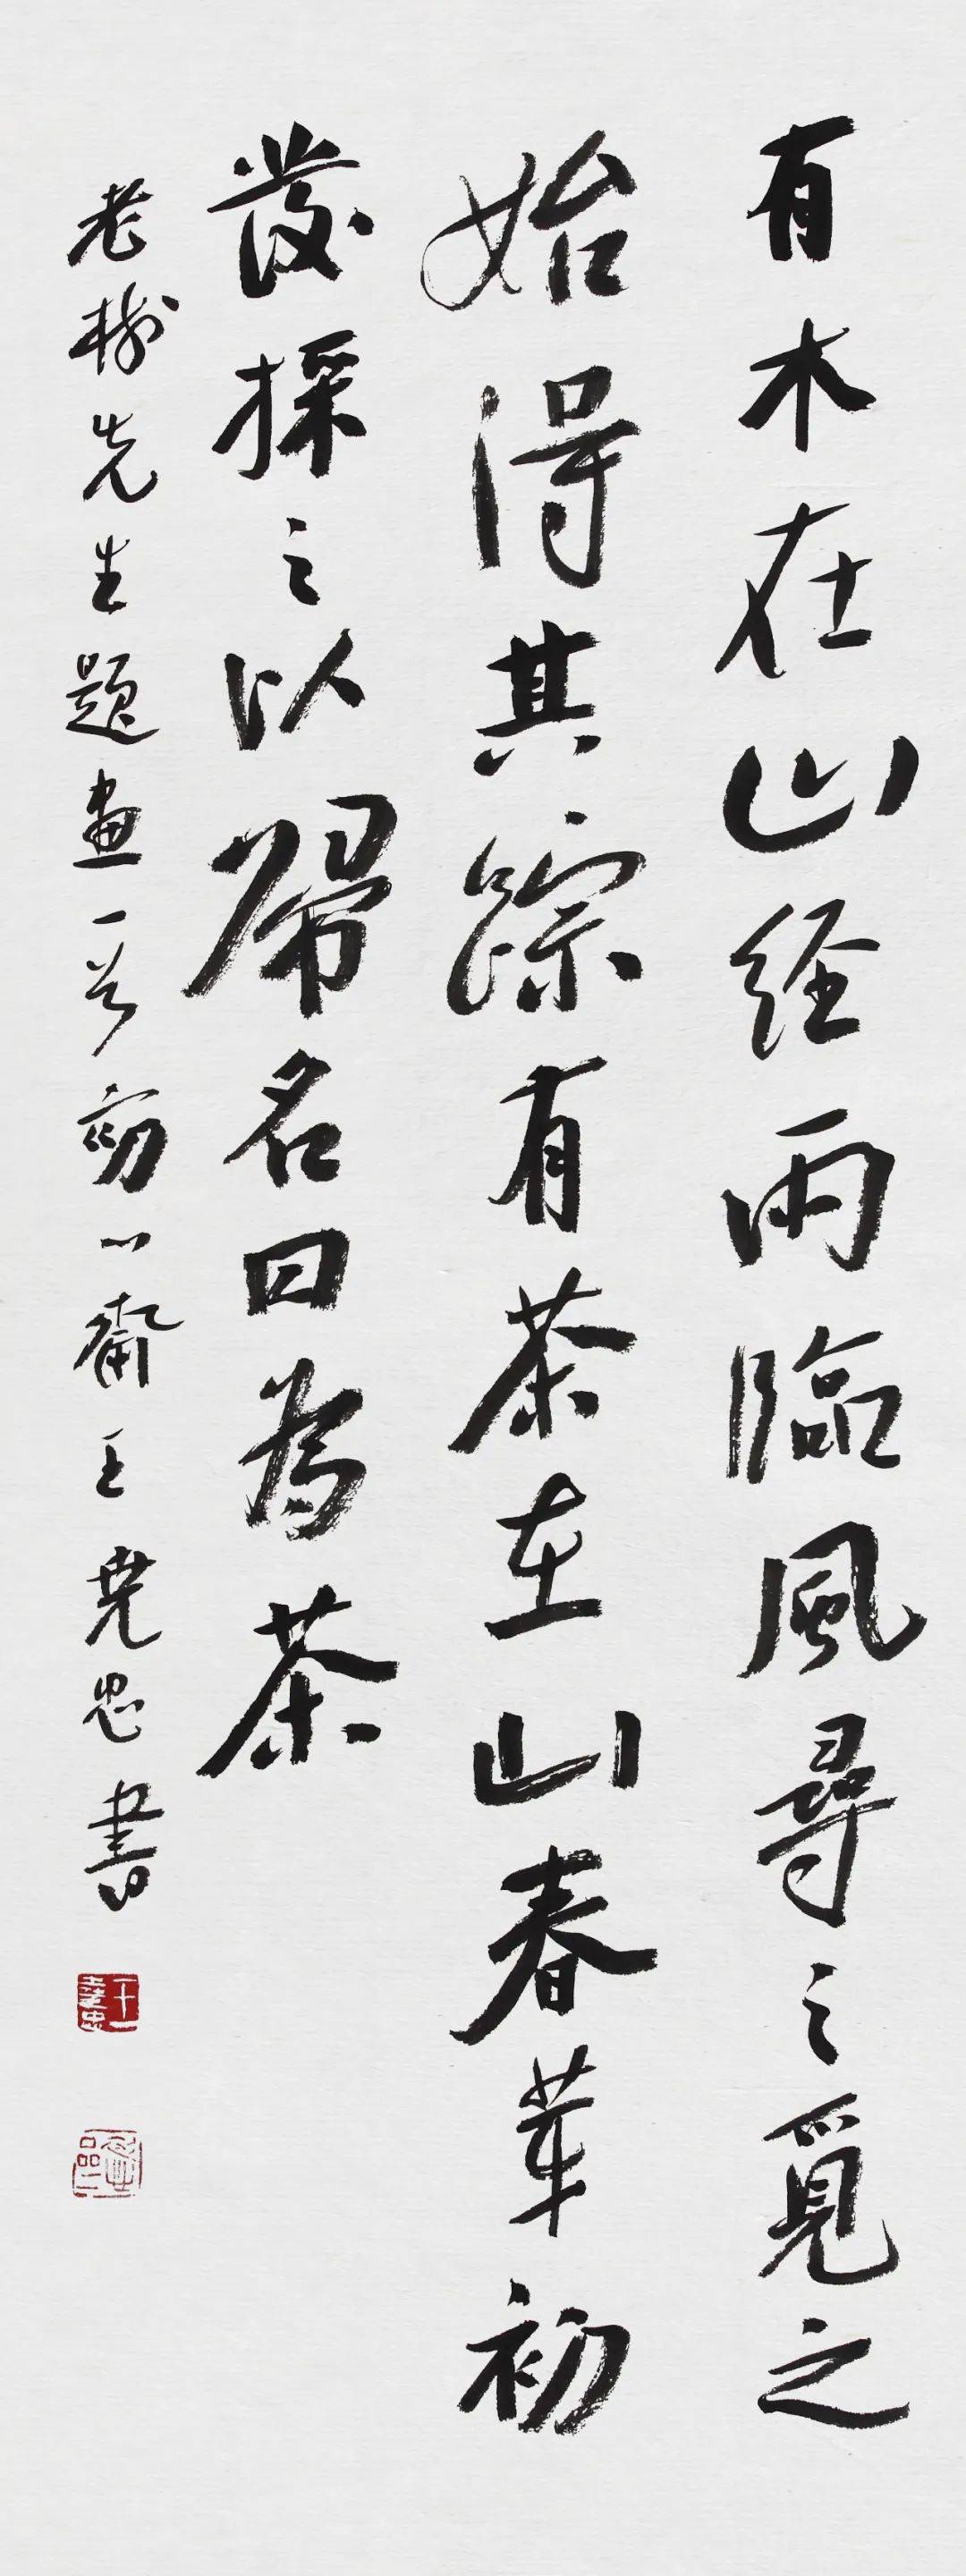 有木在山经雨臨風尋之覓之
始得其踪有茶在山春華初
發採之以歸名曰為茶
老樹先生題畫一首心齋王堯忠書